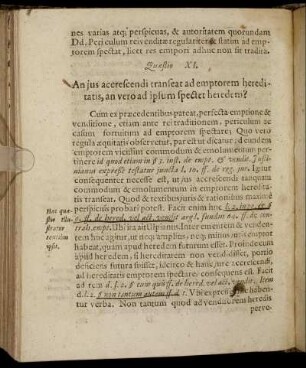 nes varias atq; perspicuas, & autoritatem quorundam
Dd. Periculum rei venditæ regulariter & statim ad emp-
torem spectat, licet res emptori adhuc non sit tradita.
Quæstio XI.
An jus accrescendi transeat ad emptorem heredi-
tatis, an vero ad ipsum spectet heredem?
Cum ex præcedentibus pateat, perfecta emptione &
venditione, etiam ante rei traditionem, periculum ac
casum fortuitum ad emptorem spectare; Quo vero
regula æquitatis observetur, par est ut dicamus, ad eundem
emptorem vicissim commodum & emolumentum per-
tinere id quod etiam in § 3. inst. de empt. & vendit. Justi-
nianus expresse testatur juncta l. 10. ff. de reg. jur. Igitur
consequenter necesse est, ut jus accrescendi tanquam
commodum & emolumentum in emptorem heredita-
tis transeat. Quod & textibus juris & rationibus maxime
perspicuis probari potest. Facit enim huc
ff. de hered. vel act. vendit
trah. empt. Ubi ita ait Ulpianus. Inter emtorem & venden-
tem hoc agitur, ut neq; amplius, neq; minus juris emptor
habeat, quam apud heredem futurum esset. Proinde cum
apud heredem, si hereditatem non vendidisset, portio
deficiens futura fuisset, idcirco & hanc jure accrescendi,
ad hereditatis emptorem spectare, consequens est. Facit
ad rem d. l. 2.
d. l. 2. § non tantum autem ff. d. t. Ubi expressa hæc haben-
tur verba. Non tantum quod ad venditorem heredis
pervo-